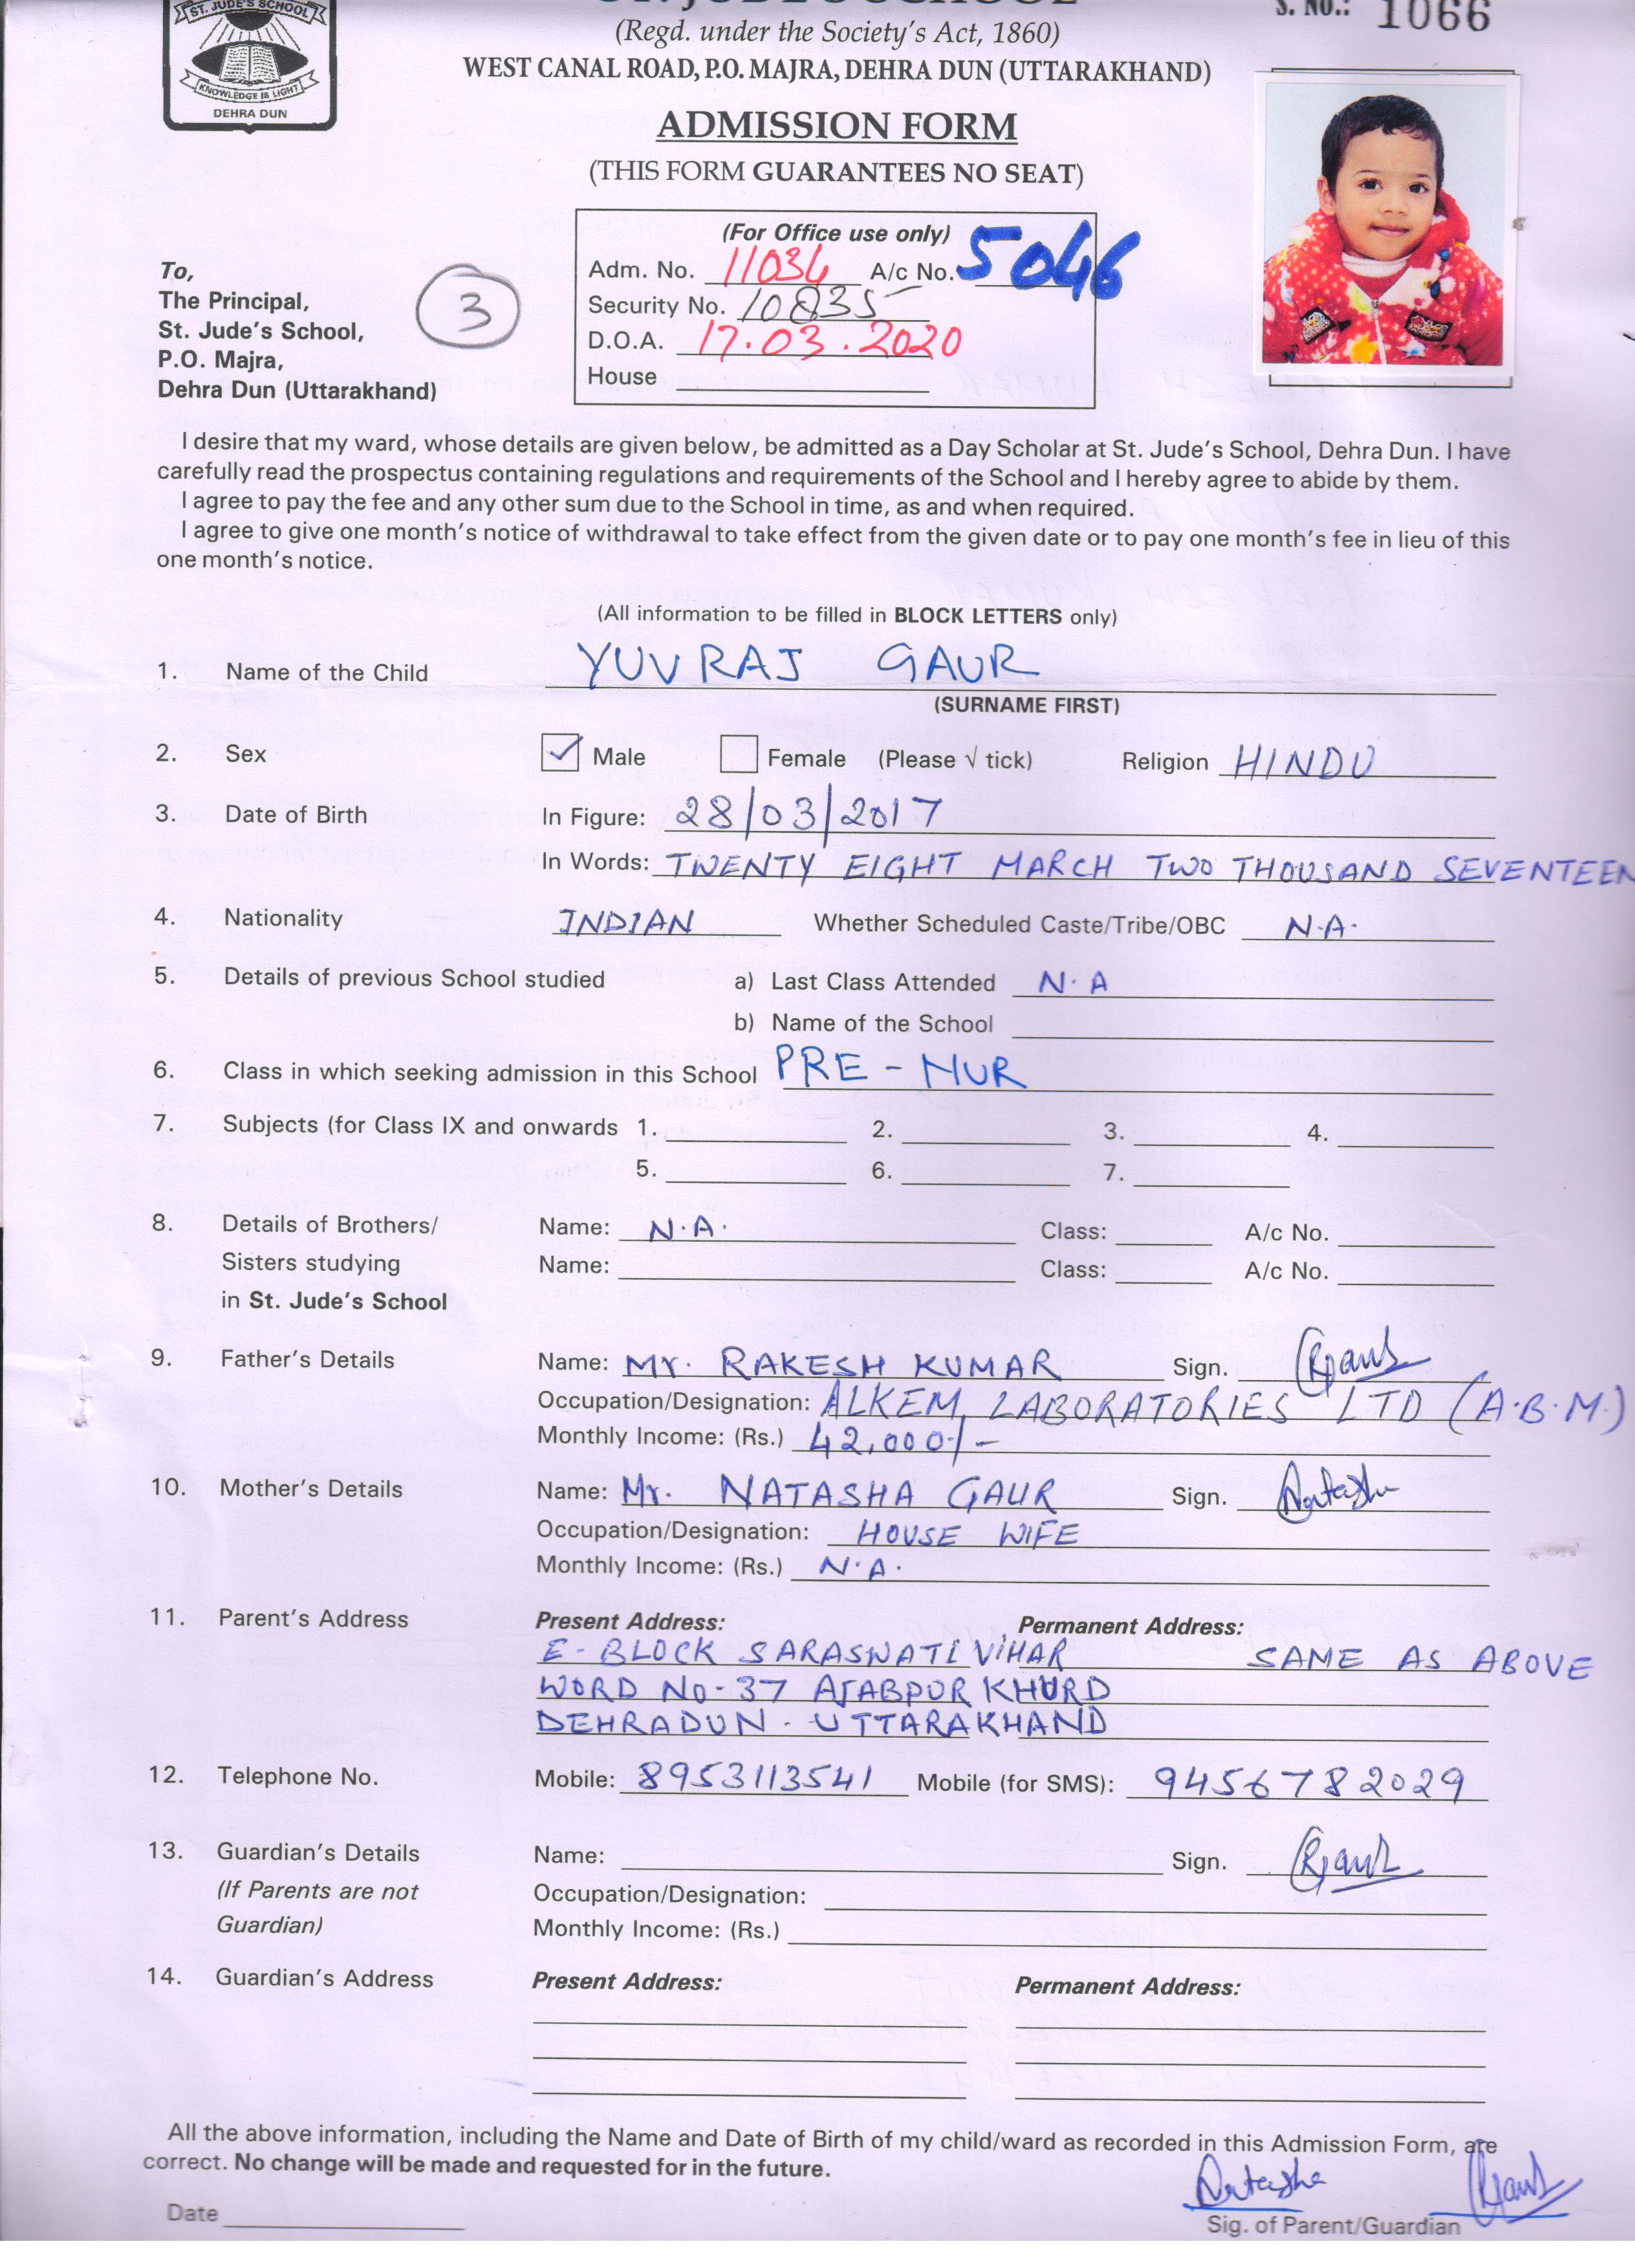 ST. JUDE'S SCHOOL
KNOWLEDGE IS LIGHT
DEHRA DUN
ST. JUDE'S SCHOOL
S. No.: 1066
(Regd. under the Society's Act, 1860)
WEST CANAL ROAD, P.O. MAJRA, DEHRA DUN (UTTARAKHAND)
ADMISSION FORM
(THIS FORM GUARANTEES NO SEAT)
(For Office use only)
Adm. No. 11034 A/c No. 5046
Security No. 10835
D.O.A. 17.03.2020
House
To,
The Principal,
St. Jude's School,
P.O. Majra,
Dehra Dun (Uttarakhand)
3
I desire that my ward, whose details are given below, be admitted as a Day Scholar at St. Jude's School, Dehra Dun. I have
carefully read the prospectus containing regulations and requirements of the School and I hereby agree to abide by them.
I agree to pay the fee and any other sum due to the School in time, as and when required.
I agree to give one month's notice of withdrawal to take effect from the given date or to pay one month's fee in lieu of this
one month's notice.
(All information to be filled in BLOCK LETTERS only)
1. Name of the Child YUVRAJ GAUR
(SURNAME FIRST)
2. Sex ✓ Male Female (Please √ tick) Religion HINDU
3. Date of Birth In Figure: 28/03/2017
In Words: TWENTY EIGHT MARCH TWO THOUSAND SEVENTEEN
4. Nationality INDIAN Whether Scheduled Caste/Tribe/OBC N.A.
5. Details of previous School studied a) Last Class Attended N.A
b) Name of the School
6. Class in which seeking admission in this School PRE - NUR
7. Subjects (for Class IX and onwards 1. 2. 3. 4.
5. 6. 7.
8. Details of Brothers/ Name: N.A. Class: A/c No.
Sisters studying Name: Class: A/c No.
in St. Jude's School
9. Father's Details Name: Mr. RAKESH KUMAR Sign.
Occupation/Designation: ALKEM LABORATORIES LTD (A.B.M.)
Monthly Income: (Rs.) 42,000/-
10. Mother's Details Name: Mr. NATASHA GAUR Sign. Natasha
Occupation/Designation: HOUSE WIFE
Monthly Income: (Rs.) N.A.
11. Parent's Address Present Address: Permanent Address:
E-BLOCK SARASWATI VIHAR SAME AS ABOVE
WORD No-37 AJABPUR KHURD
DEHRADUN - UTTARAKHAND
12. Telephone No. Mobile: 8953113541 Mobile (for SMS): 9456782029
13. Guardian's Details Name: Sign.
(If Parents are not Occupation/Designation:
Guardian) Monthly Income: (Rs.)
14. Guardian's Address Present Address: Permanent Address:
All the above information, including the Name and Date of Birth of my child/ward as recorded in this Admission Form, are
correct. No change will be made and requested for in the future.
Natasha
Date Sig. of Parent/Guardian